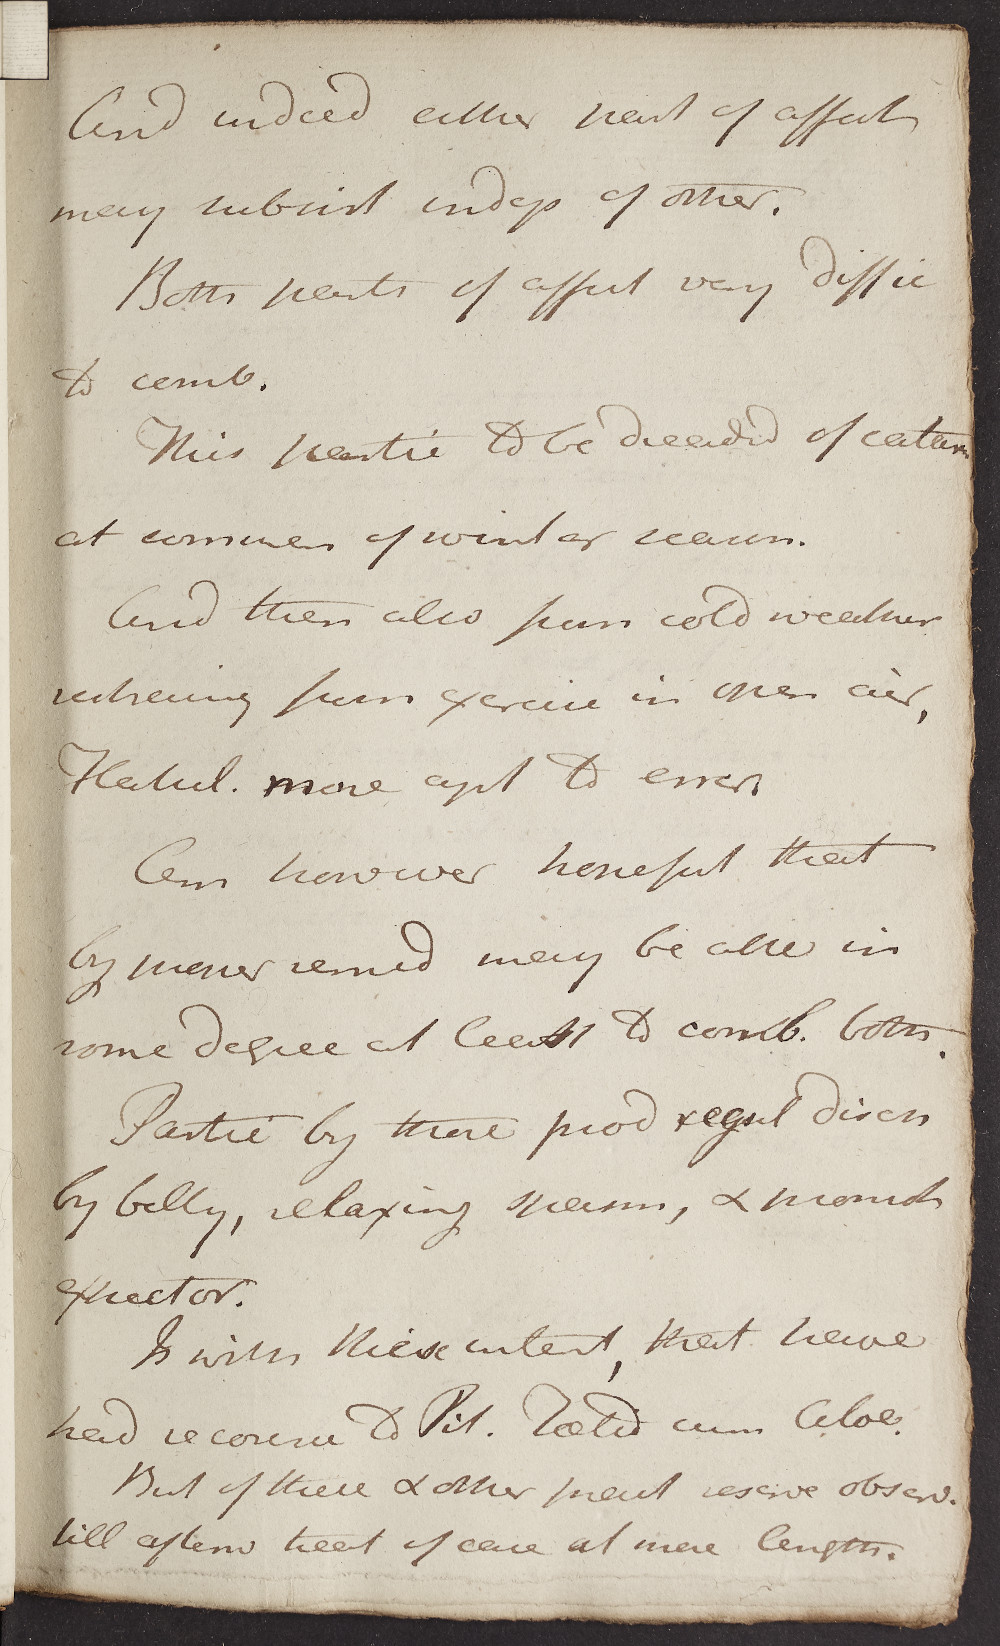 And indeed either part of affect
may subsist indep of other.
Both parts of affect very diffic
to comb.
This partic to be dreaded of catarr
at commen of winter season.
And then also from cold weather
restraining from exercise in open air,
Habit. more apt to error.
Am however hopeful that
by proper remed may be able in
some degree at least to comb. both.
Partic by those prod regul disch
by belly, relaxing spasm, & promot
expector.
Is with this intent, that have
had recourse to Pil. Fœtid cum Aloe.
But of these & other pract reserve observ.
till afterw treat of case at more length.